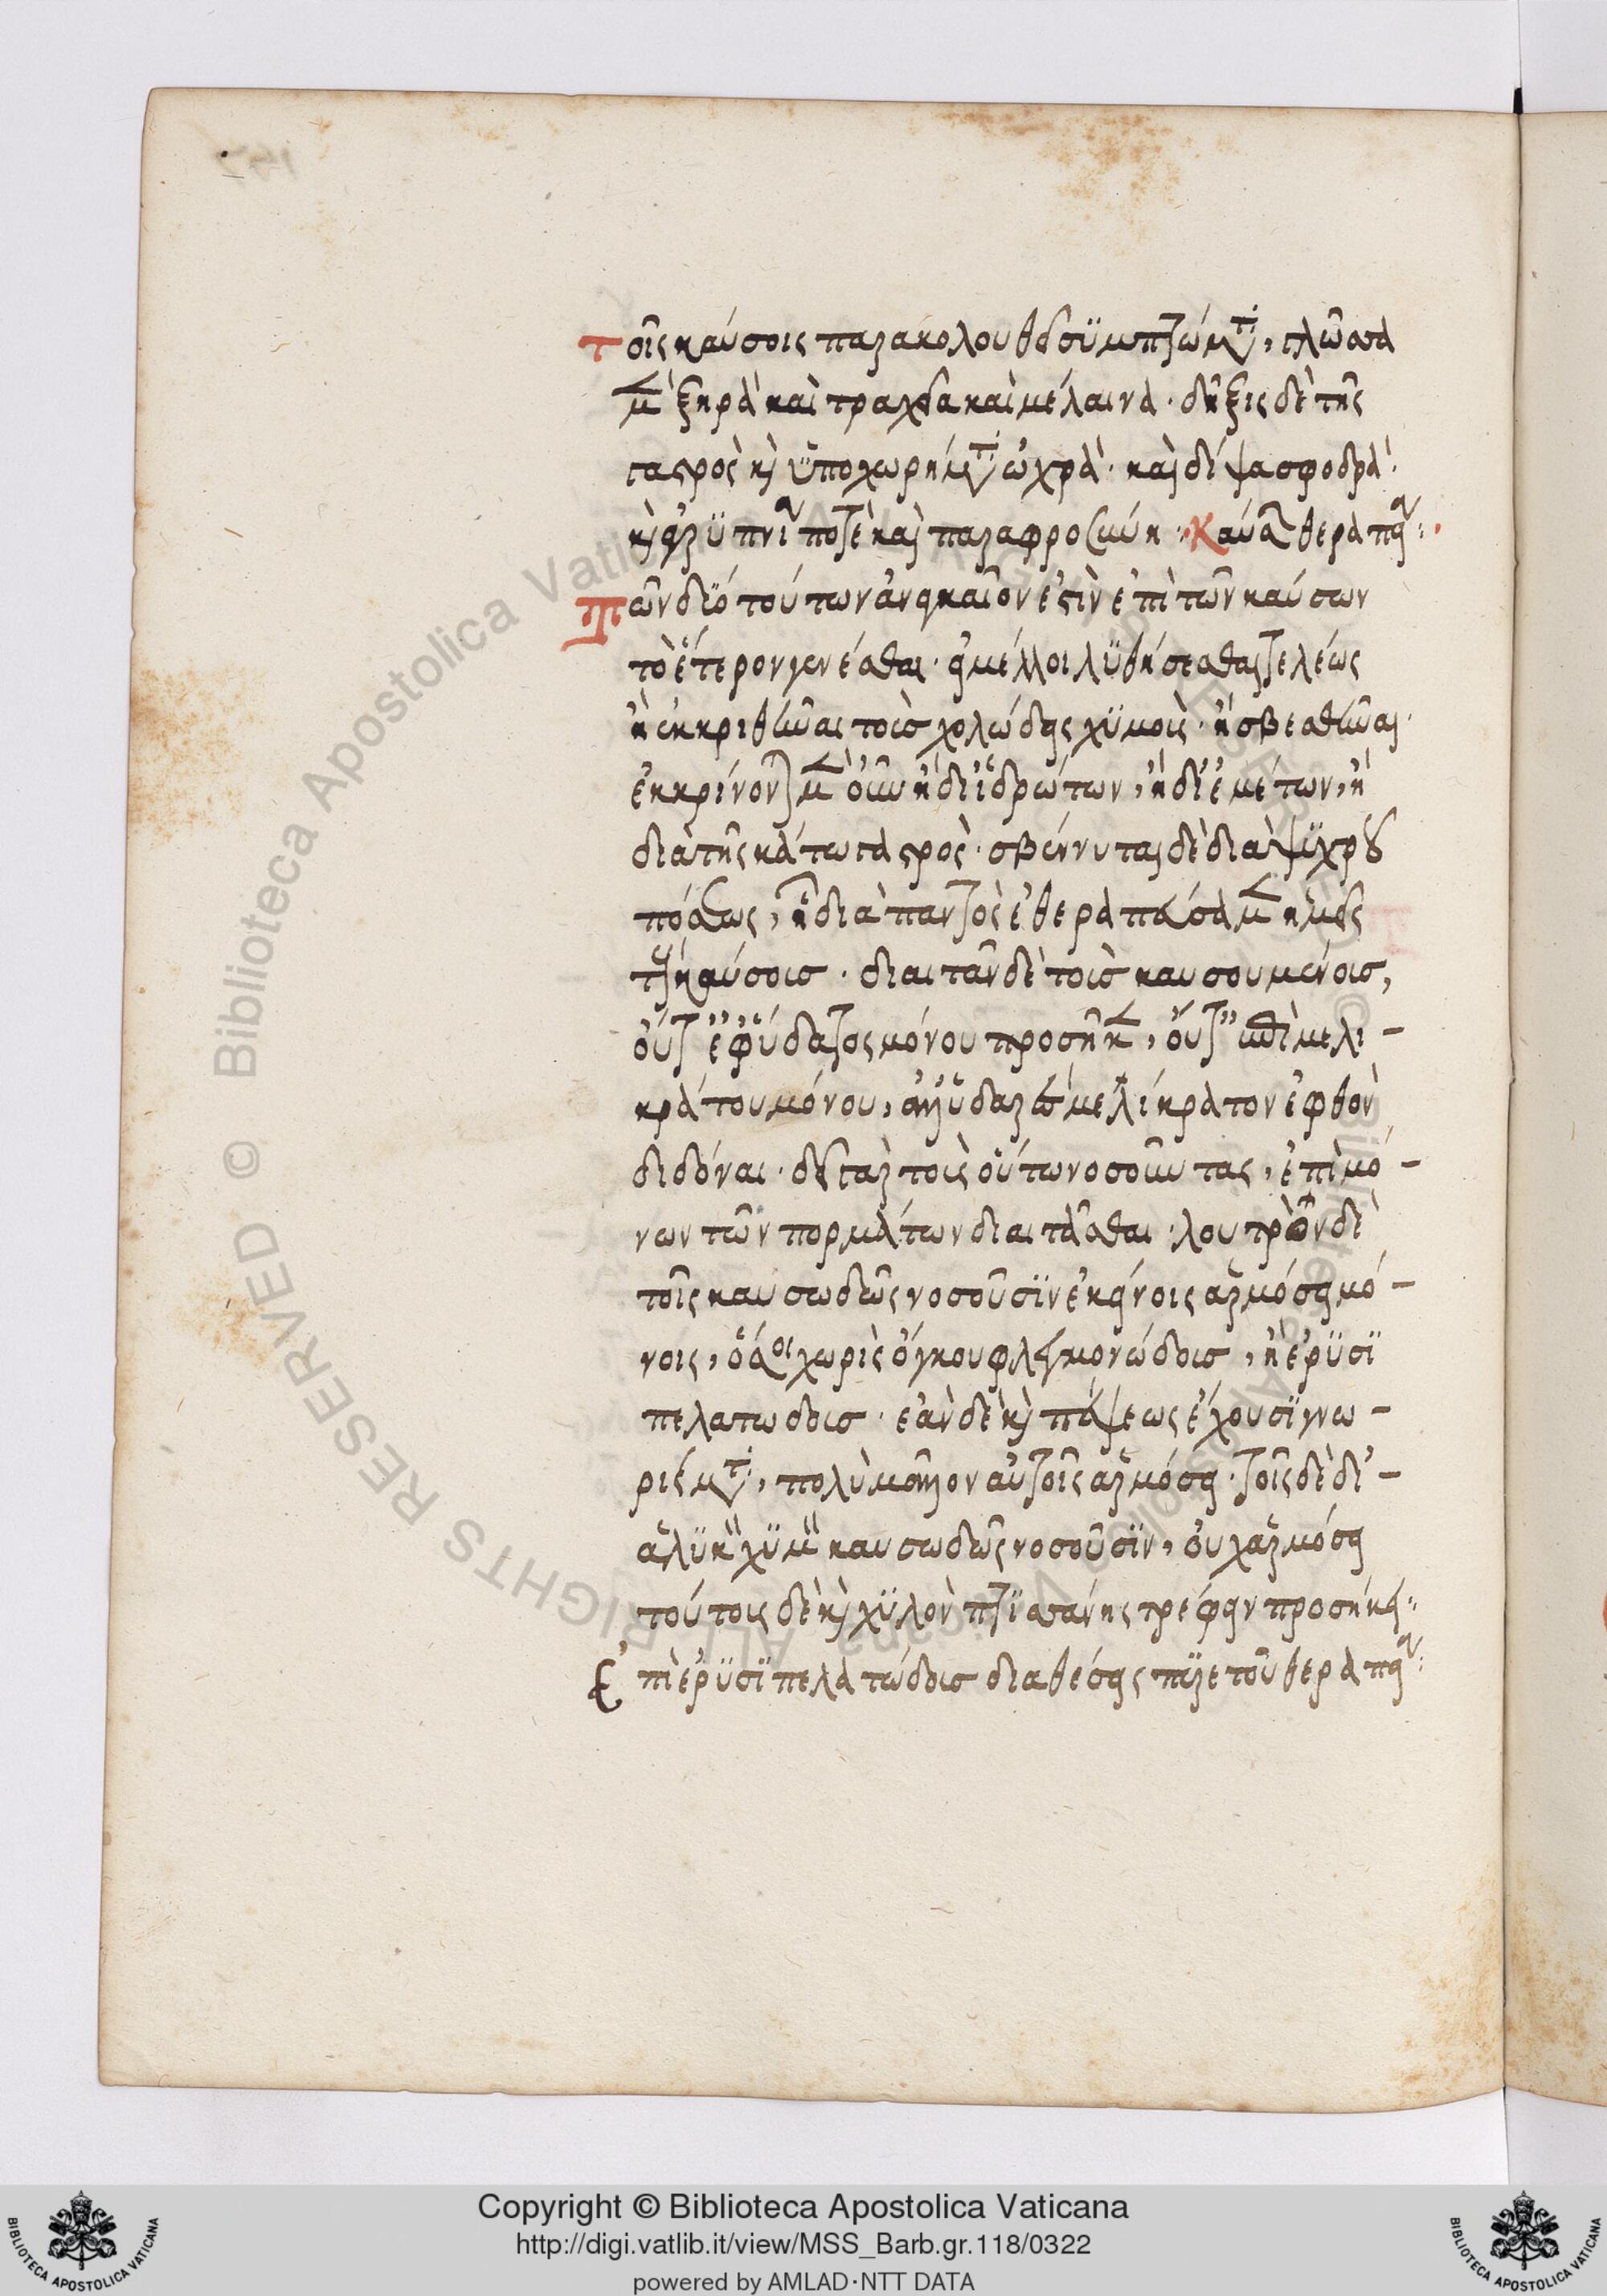 τοῖς καύσοις παρακολουθεῖ συμπτώματα, γλῶσσα
μὲν ξηρὰ καὶ τραχεῖα καὶ μέλαινα· δῆξις δὲ τῆς
γαστρὸς καὶ ὑποχωρήματα ὠχρά· καὶ δίψα σφοδρά·
καὶ ἀγρυπνία ποτὲ καὶ παραφροσύνη· καύσου θεραπεία:
Τῶν δύο τούτων ἀναγκαῖον ἐστὶν ἐπὶ τῶν καύσων
τὸ ἕτερον γενέσθαι· εἰ μέλλοι λυθήσεσθαι τελέως
ἢ ἐκκριθῆναι τοὺς χολώδεις χυμούς· ἢ σβεσθῆναι·
ἐκκρίνονται μὲν οὖν ἢ δι' ἱδρώτων, ἢ δι' ἐμέτων, ἢ
διὰ τῆς κάτω γαστρός· σβέννυται δὲ διὰ ψυχροῦ
πόσεως, ἣ διὰ παντὸς ἐθεράπευσα μὲν ἡμεῖς
τοὺς καύσους· διαιτᾶν δὲ τοὺς καυσουμένους,
οὔτε ἐφ' ὕδατος μόνου προσῆκεν, οὔτ' ἐπὶ μελι-
κράτου μόνου, ἀλλ' ὕδαρὲς μελίκρατον ἑφθὸν
διδόναι· δεῖ γὰρ τοὺς οὕτω νοσοῦντας, ἐπὶ μό-
νων τῶν πομάτων διαιτᾶσθαι· λουτρὸν δὲ
τοῖς καυσωδῶς νοσοῦσιν ἐκείνοις ἁρμόσει μό-
νοις, ὅσοι χωρὶς ὄγκου φλεγμονώδους, ἢ ἐρυσι
πελατώδους· ἐὰν δὲ καὶ πέψεως ἔχουσι γνω-
ρίσματα, πολὺ μᾶλλον αὐτοῖς ἁρμόσει· τοῖς δὲ δι' -
ἁλυκῶν χυμῶν καυσωδῶς νοσοῦσιν, οὐχ ἁρμόσει
τούτοις δὲ καὶ χυλὸν πτισάνης τρέφειν προσήκει:
Ἐπὶ ἐρυσιπελατώδους διαθέσεις πυρετοῦ θεραπεία:
Copyright © Biblioteca Apostolica Vaticana
http://digi.vatlib.it/view/MSS_Barb.gr.118/0322
powered by AMLAD·NTT DATA